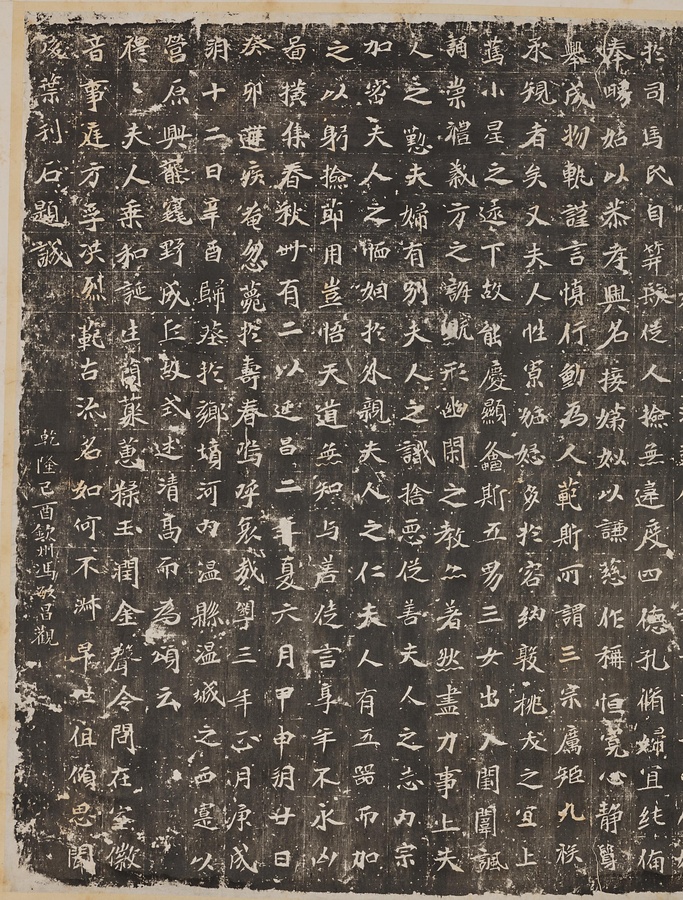 於司馬氏自笄發從人撫無違度四德孔脩婦宜純俻
奉時始以恭孝興名接娣姒以謙慈作稱恒寬心靜質
舉成物軌謹言慎行動為人範斯所謂三宗厲矩九族
承規者矣又夫人性寡妬忌多於容納敦桃夭之宜上
篤小星之逮下故能慶顯螽斯五男三女出入閨闈諷
誦崇禮義方之訓既形幽閑之教亦著然盡力事上夫
人之懃夫婦有別夫人之識捨惡從善夫人之志內宗
加密夫人之恤姻於外親夫人之仁夫人有五器而加
之以躬撿節用豈悟天道無知与善徒言享年不永凶
啚橫集春秋卌有二以延昌二年夏六月甲申朔廿日
癸卯遘疾奄忽薨於壽春嗚呼哀哉粵三年正月庚戌
朔十二日辛酉歸塟於鄉墳河內温縣温城之西䆳以
營原興壟窀野成丘故式述清高而為頌云
穆〻夫人乘和誕生蘭蕖蕙糅玉潤金聲令問在室徽
音事庭方孚洪烈範古流名如何不淋早世徂傾思聞
後葉刊石題誠
乾隆己酉欽州馮敏昌觀